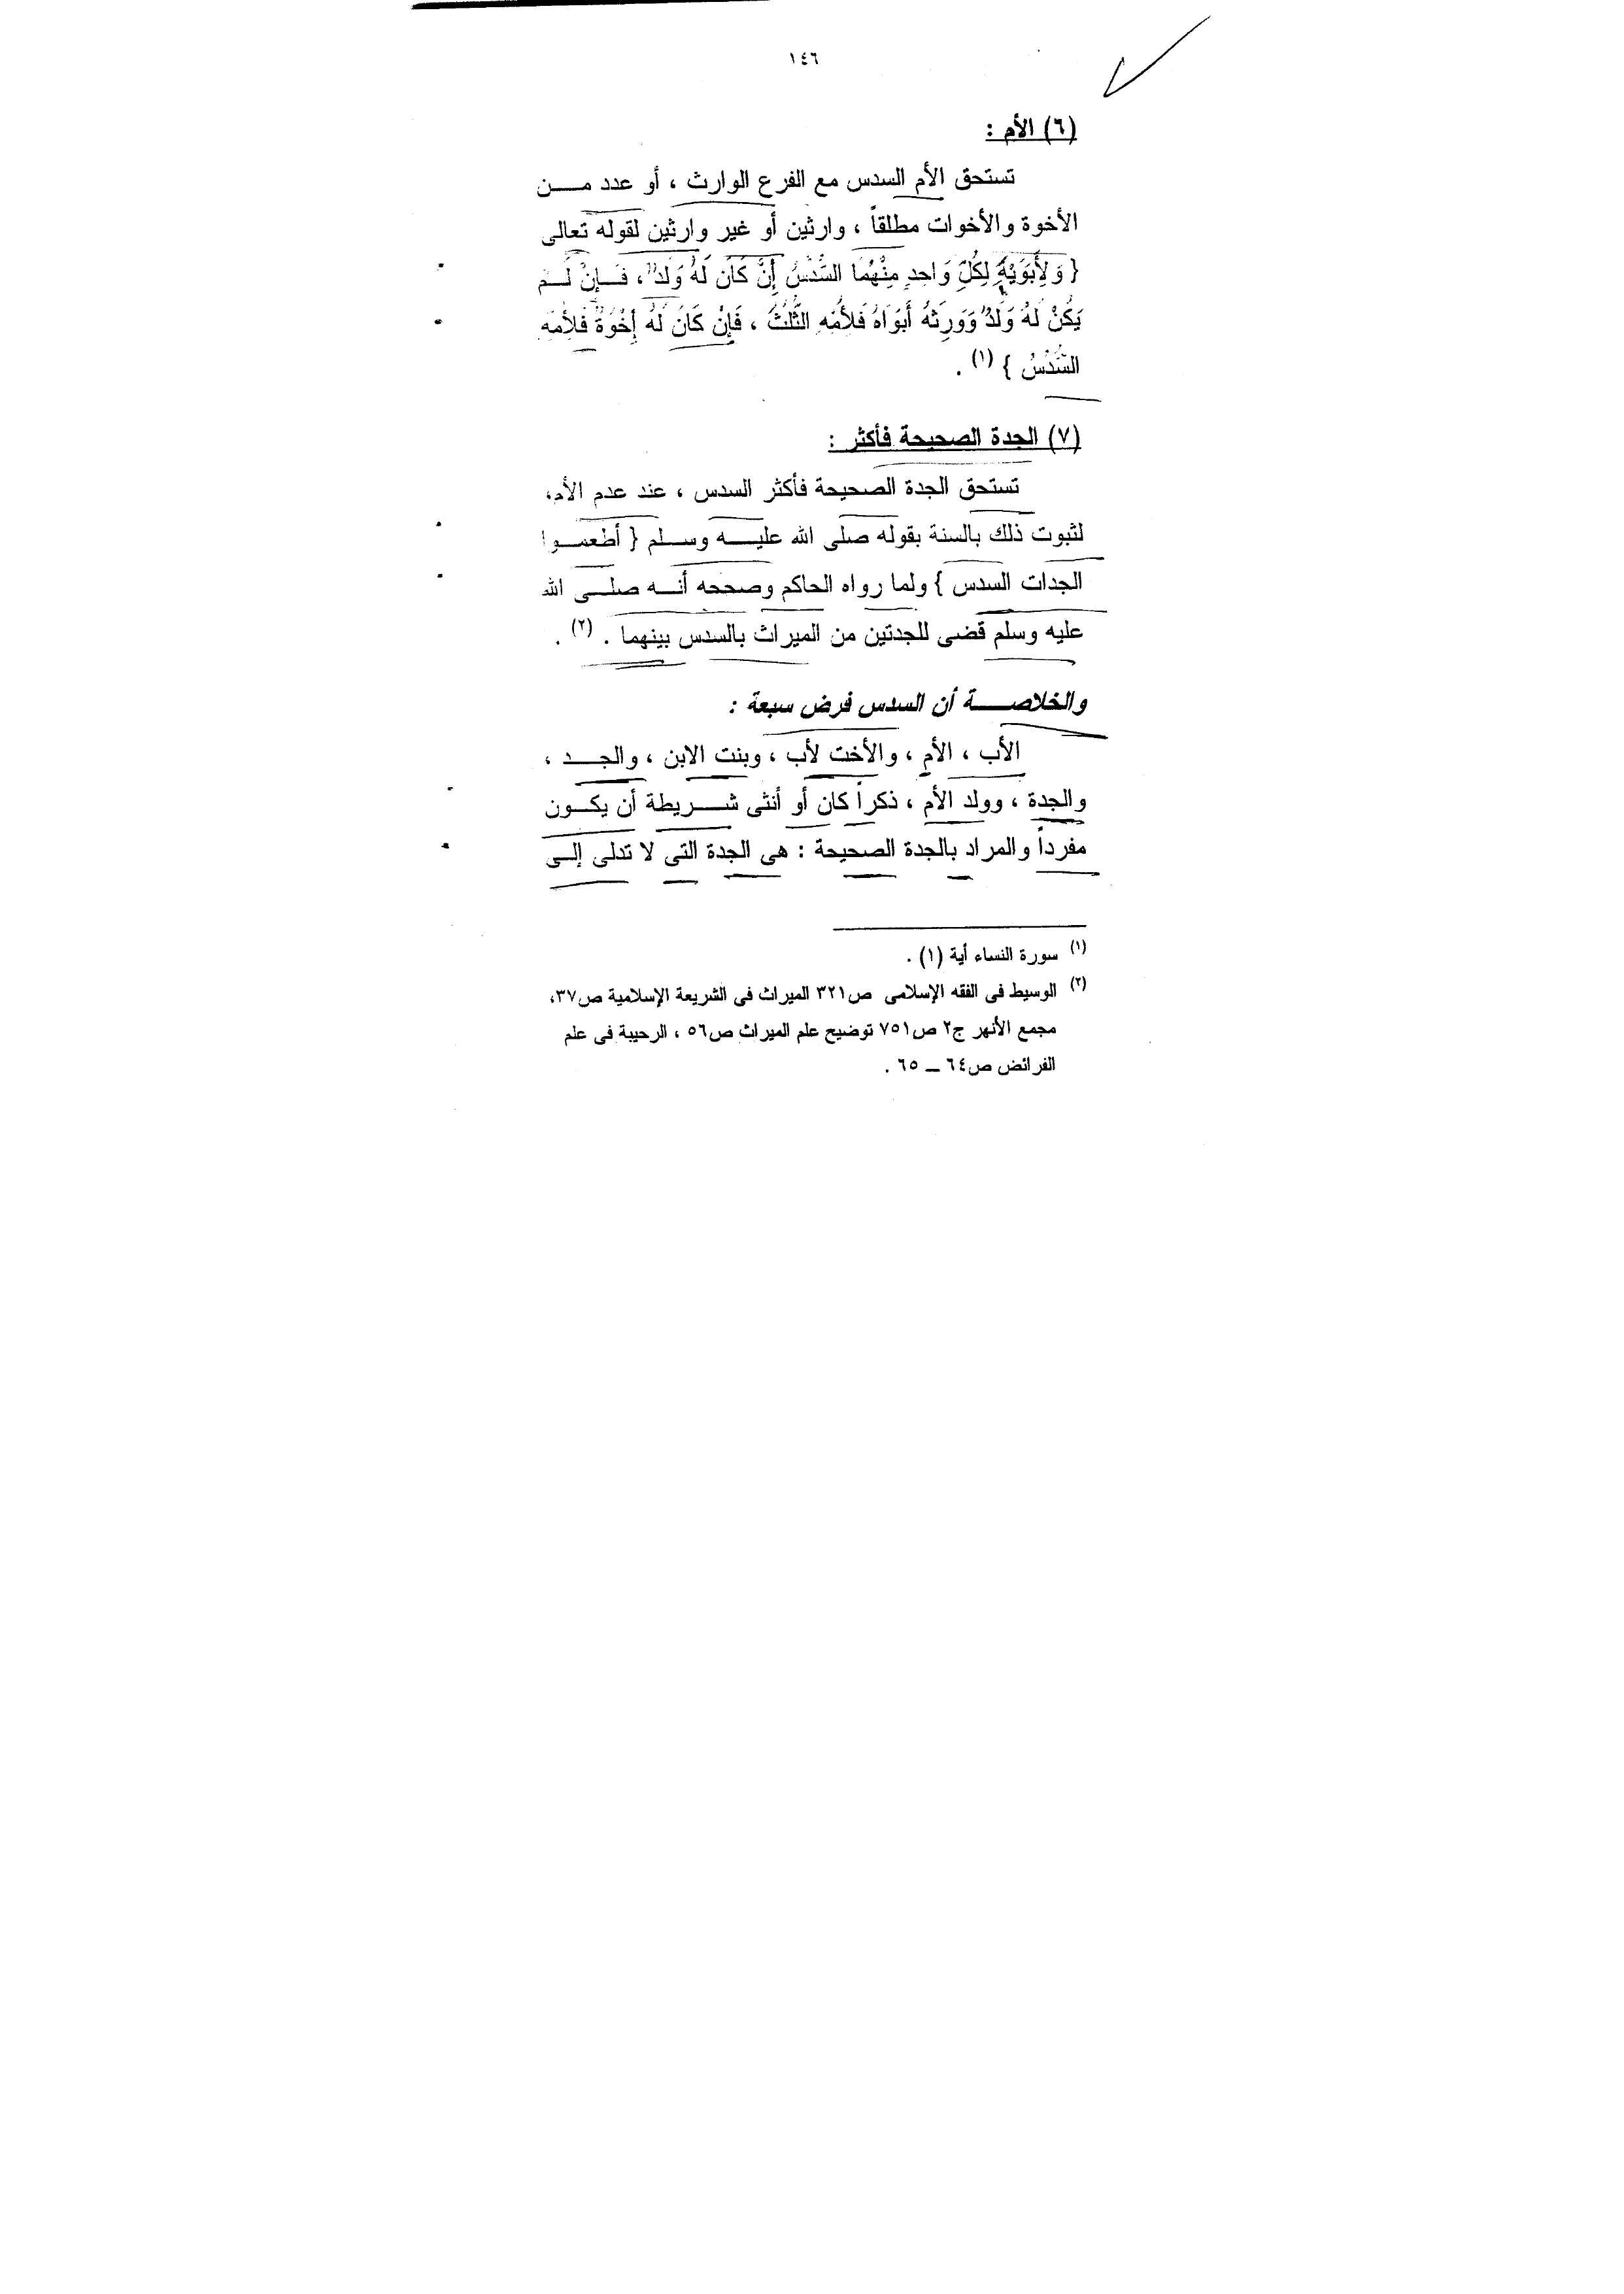 ١٤٦
(٦) الأم :
تستحق الأم السدس مع الفرع الوارث ، أو عدد مـــن
الأخوة والأخوات مطلقاً ، وارثين أو غير وارثين لقوله تعالى
{ وَلِأَبَوَيْهِ لِكُلِّ وَاحِدٍ مِنْهُمَا السُّدُسُ إِنْ كَانَ لَهُ وَلَدٌ ، فَــإِنْ لَــمْ
يَكُنْ لَهُ وَلَدٌ وَوَرِثَهُ أَبَوَاهُ فَلأُمِّهِ الثُّلُثُ ، فَإِنْ كَانَ لَهُ إِخْوَةٌ فَلأُمِّهِ
السُّدُسُ } (١) .
(٧) الجدة الصحيحة فأكثر :
تستحق الجدة الصحيحة فأكثر السدس ، عند عدم الأم،
لثبوت ذلك بالسنة بقوله صلى الله عليـــه وســـلم { أطعمــوا
الجدات السدس } ولما رواه الحاكم وصححه أنـــه صلـــى الله
عليه وسلم قضى للجدتين من الميراث بالسدس بينهما . (٢) .
والخلاصـــــة أن السدس فرض سبعة :
الأب ، الأم ، والأخت لأب ، وبنت الابن ، والجـــد ،
والجدة ، وولد الأم ، ذكراً كان أو أنثى شـــريطة أن يكــون
مفرداً والمراد بالجدة الصحيحة : هى الجدة التى لا تدلى إلــى
(١) سورة النساء أية (١) .
(٢) الوسيط فى الفقه الإسلامى ص٣٢١ الميراث فى الشريعة الإسلامية ص٣٧،
مجمع الأنهر ج٢ ص٧٥١ توضيح علم الميراث ص٥٦ ، الرحيبة فى علم
الفرائض ص٦٤ ــ ٦٥ .